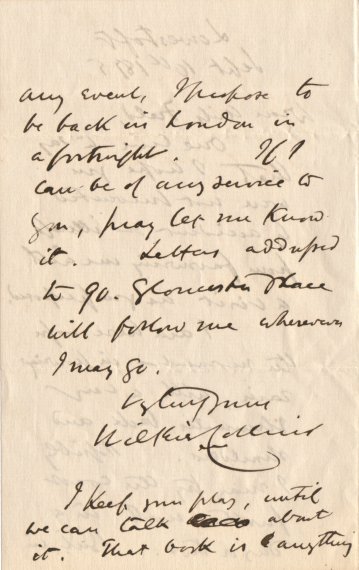 any event, I propose to
be back in London in
a fortnight. If I
can be of any service to
you, pray let me know
it. Letters addressed
to 90. Gloucester Place
will follow me wherever
I may go.
Wilkie Collins
I keep your play, until
we can talk about
it. That book is
anything